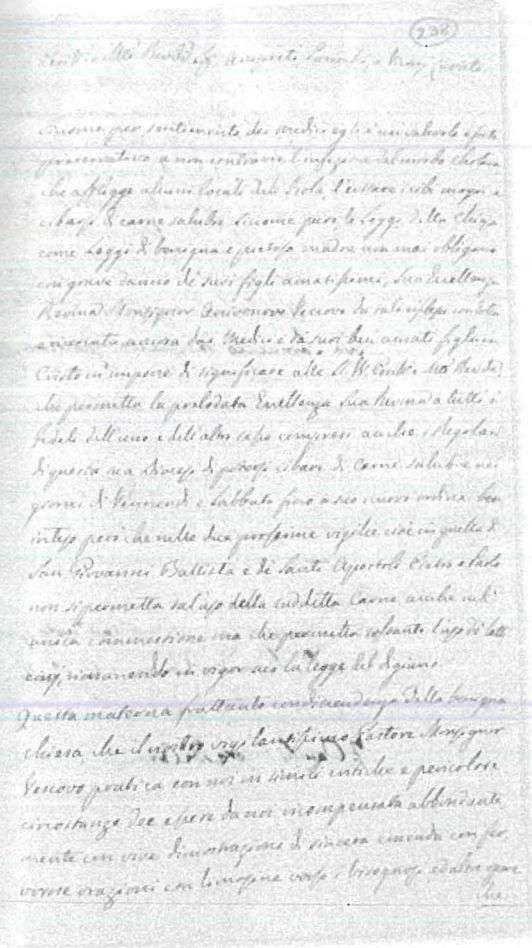 238
Illri e Mto Revdi
siccome per sentimento dei medici egli è un valevole e forte
preservativo a non contrarre l'infezione del morbo cholera
che affligge alcuni locali dell'Isola, l'evitare i cibi magri e
cibarsi di carne salubre siccome pure le Leggi della Chiesa
come Leggi di benigna e pietosa madre non mai obligano
con grave danno de' suoi figli amatissimi, Sua Eccellenza
Revma Monsignor Vescovo da tali
ancora dai Medici e da suoi ben amati figli in
Cristo m'impone di significare alle S. V. e Mto Revde
che permette la prelodata Eccellenza Sua Revma a tutti i
fedeli dell'uno e dell'altro sesso compresi anche i Regolari
di questa sua Diocesi di potersi cibare di carne salubre nei
giorni di Venerdì e Sabbato fino a suo nuovo ordine ben
inteso però che nelle due prossime vigilie cioè in quella di
San Giovanni Battista e di Santi Apostoli Pietro e Paolo
non si permetta tal uso della suddetta Carne anche
ma che permetta soltanto l'uso di latti
cinj, rimanendo in vigor suo la legge del digiuno.
Questa materna frattanto condiscendenza della benigna
chiesa che il nostro vigilantissimo Pastore Monsignor
Vescovo pratica con noi in simili critiche e pericolose
circostanze dee essere da noi ricompensata abbondante
mente con vive dimostrazioni di sincera emenda con fer
vorose orazioni con limosine verso i bisognosi ed altre opere
che